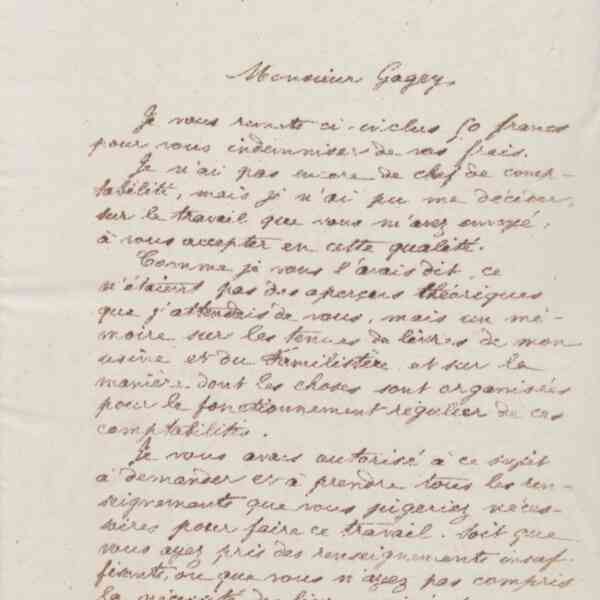 Monsieur Gagey,
Je vous remets ci-inclus 50 francs
pour vous indemniser de vos frais.
Je n'ai pas encore de chef de comp-
tabilité, mais je n'ai pu me décider,
sur le travail que vous m'avez envoyé,
à vous accepter en cette qualité.
Comme je vous l'avais dit, ce
n'étaient pas des aperçus théoriques
que j'attendais de vous, mais un mé-
moire sur les tenues de livres de mon
usine et du Familistère et sur la
manière dont les choses sont organisées
pour le fonctionnement régulier de ces
comptabilités.
Je vous avais autorisé à ce sujet
à demander et à prendre tous les ren-
seignements que vous jugeriez néces-
saires pour faire ce travail. Soit que
vous ayez pris des renseignements insuf-
fisants, ou que vous n'ayez pas compris
la nécessité de